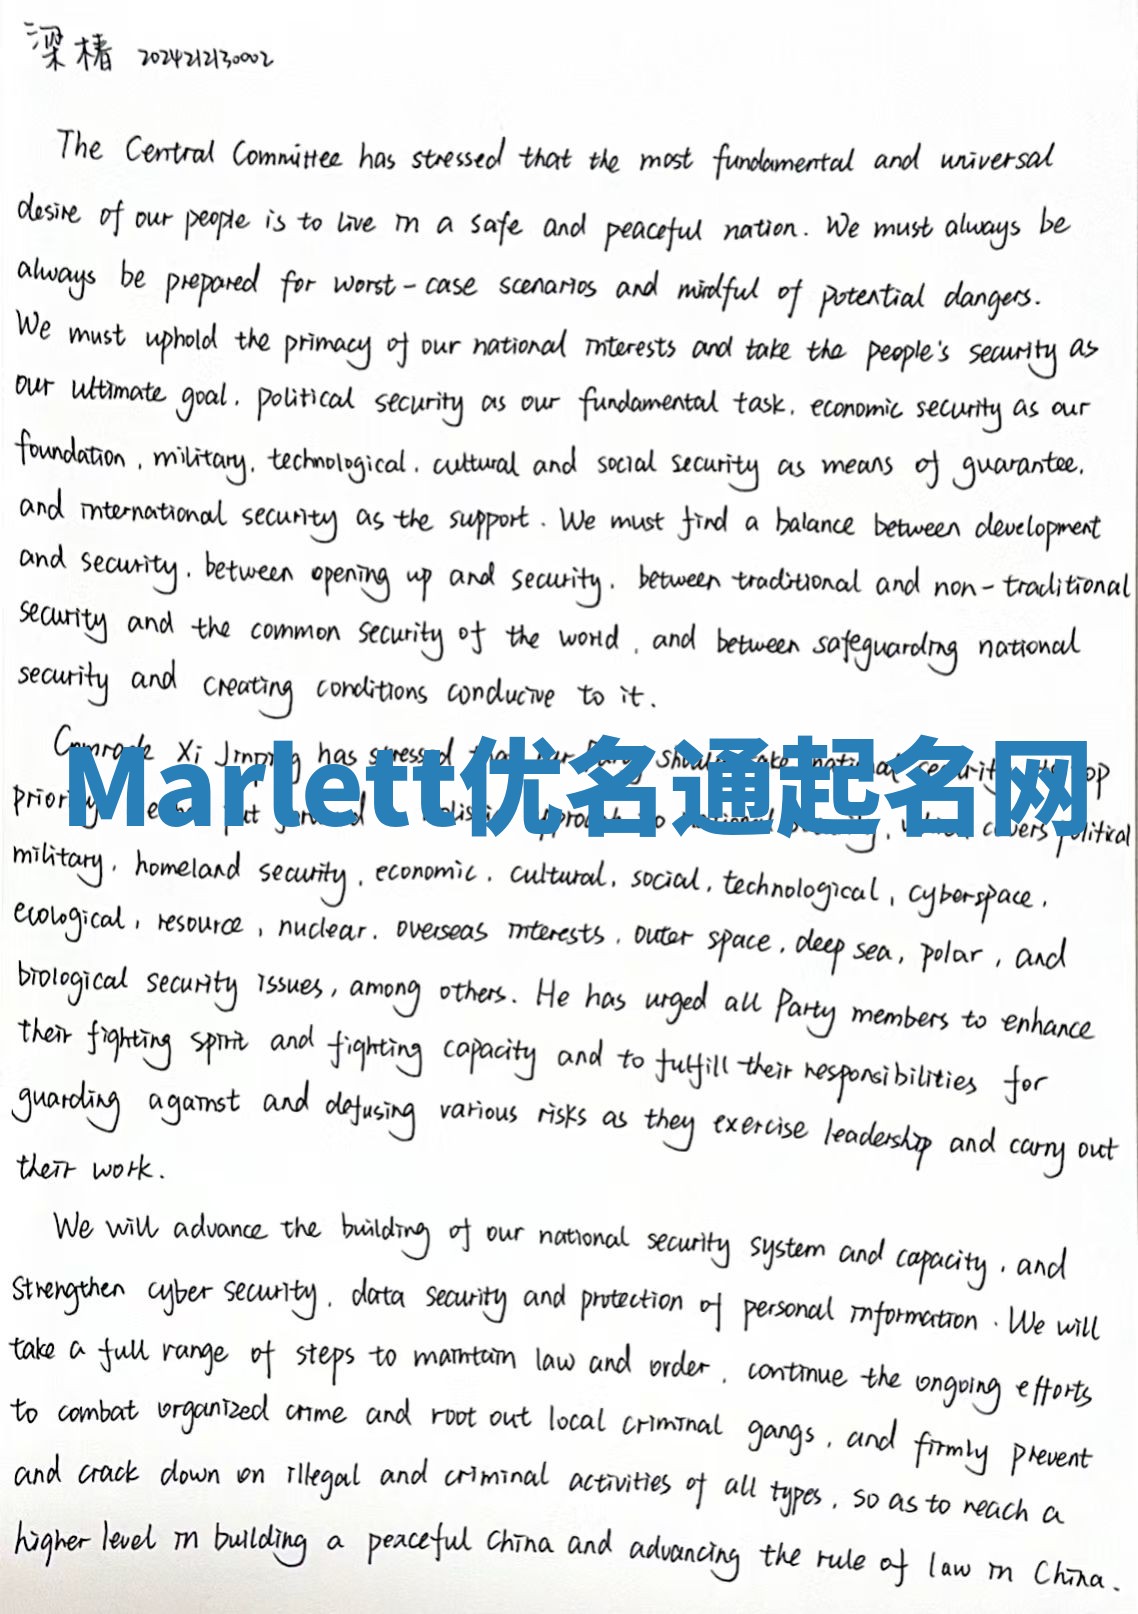 梁椿 2024212130002
The Central Committee has stressed that the most fundamental and universal
desire of our people is to live in a safe and peaceful nation. We must always be
always be prepared for worst-case scenarios and mindful of potential dangers.
We must uphold the primacy of our national interests and take the people's security as
our ultimate goal, political security as our fundamental task, economic security as our
foundation, military, technological, cultural and social security as means of guarantee,
and international security as the support. We must find a balance between development
and security, between opening up and security, between traditional and non-traditional
security and the common security of the world, and between safeguarding national
security and creating conditions conducive to it.
Comrade Xi Jinping has stressed
Marlett优名通起名网
political
military, homeland security, economic, cultural, social, technological, cyberspace,
ecological, resource, nuclear, overseas interests, outer space, deep sea, polar, and
biological security issues, among others. He has urged all Party members to enhance
their fighting spirit and fighting capacity and to fulfill their responsibilities for
guarding against and defusing various risks as they exercise leadership and carry out
their work.
We will advance the building of our national security system and capacity, and
strengthen cyber security, data security and protection of personal information. We will
take a full range of steps to maintain law and order, continue the ongoing efforts
to combat organized crime and root out local criminal gangs, and firmly prevent
and crack down on illegal and criminal activities of all types, so as to reach a
higher level in building a peaceful China and advancing the rule of law in China.